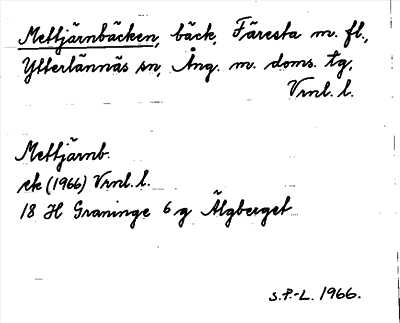 Mettjärnbäcken, bäck, Färesta m. fl.,
Ytterlännäs sn, Ång. m. doms. tg,
Vrnl. l.
Mettjärnb.
ek (1966) Vrnl. l.
18 H Graninge 6 g Älgberget
S.P.-L. 1966.